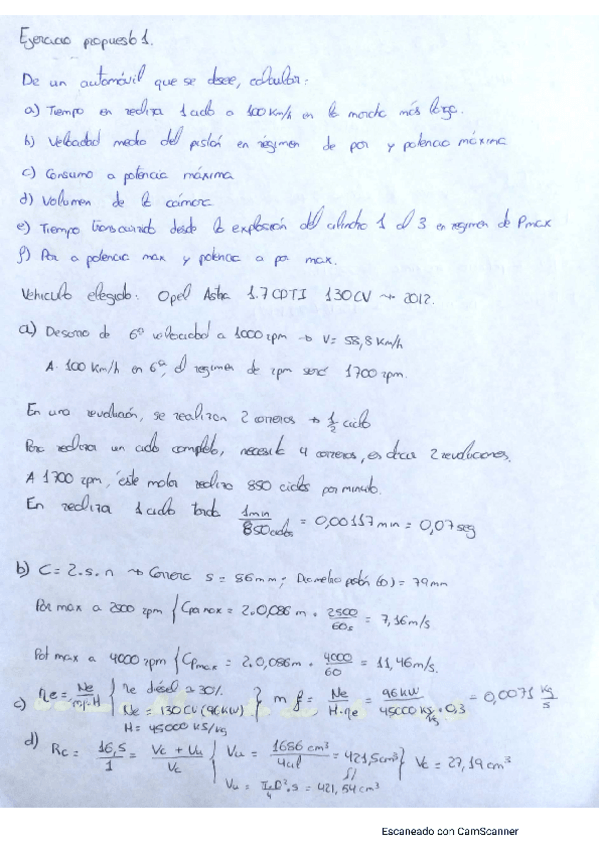 Ejercicio propuesto 1.
De un automóvil que se desee, calcular:
a) Tiempo en realizar 1 ciclo a 100 Km/h en la marcha más larga.
b) Velocidad media del pistón en régimen de par y potencia máxima
c) Consumo a potencia máxima
d) Volumen de la cámara
e) Tiempo transcurrido desde la explosión del cilindro 1 al 3 en regimen de Pmax
f) Par a potencia max y potencia a par max.
Vehiculo elegido: Opel Astra 1.7 CDTI 130CV → 2012.
a) Desarrollo de 6ª velocidad a 1000 rpm → V= 58,8 Km/h
A 100 Km/h en 6ª, el regimen de rpm será 1700 rpm.
En una revolución, se realizan 2 carreras → 1/2 ciclo
Para realizar un ciclo completo, necesita 4 carreras, es decir 2 revoluciones.
A 1700 rpm, este motor realiza 850 ciclos por minuto.
En realizar 1 ciclo tarda 1min/850ciclos = 0,00117min = 0,07seg
b) C = 2.s.n → Carrera s = 86mm; Diametro pistón (D) = 79mm
Par max a 2500 rpm { Cpar max = 2.0,086 m . 2500/60s = 7,16m/s
Pot max a 4000 rpm { Cpmax = 2.0,086m . 4000/60 = 11,46m/s.
c) ηe = Ne/mf.H { ηe diésel ≈ 30% Ne = 130CV (96KW) H = 45000 KJ/Kg } mf = Ne/H.ηe = 96KW/45000 KJ/Kg . 0,3 = 0,0071 Kg/s
d) Rc = 16,5/1 = Vc + Vu/Vc { Vu = 1686 cm³/4cil = 421,5cm³ } Vc = 27,19 cm³
Vu = π/4 D².s = 421,54 cm³
Escaneado con CamScanner